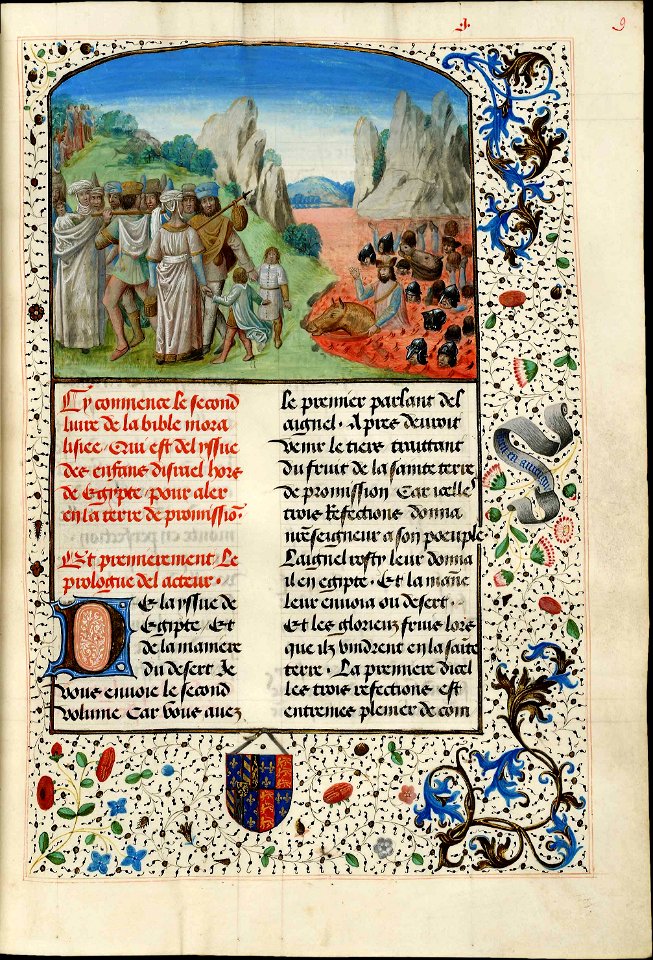 j.
9
Cy commence le second
livre de la bible mora
lisiee / Qui est del yssue
des enfans disrael hors
de Egypte / pour aler
en la terre de promissiõ ·
Et premierement Le
prologue del acteur ·
DE la yssue de
Egipte / Et
de la maniere
du desert Je
vous envoie le second
volume Car vous avez
le premier parlant del
aignel · Apres devroit
venir le tiers traittant
du fruit de la sainte terre
de promission Car icelles
trois Refections donna
nr̃eseigneur a son poeuple
Laignel rosty leur donna
il en egipte · Et la mãne
leur envoia ou desert ·
Et les glorieux fruis lors
que ilz vindrent en la saĩte
terre · La premiere dicel
les trois refections est
entremes plenier de com